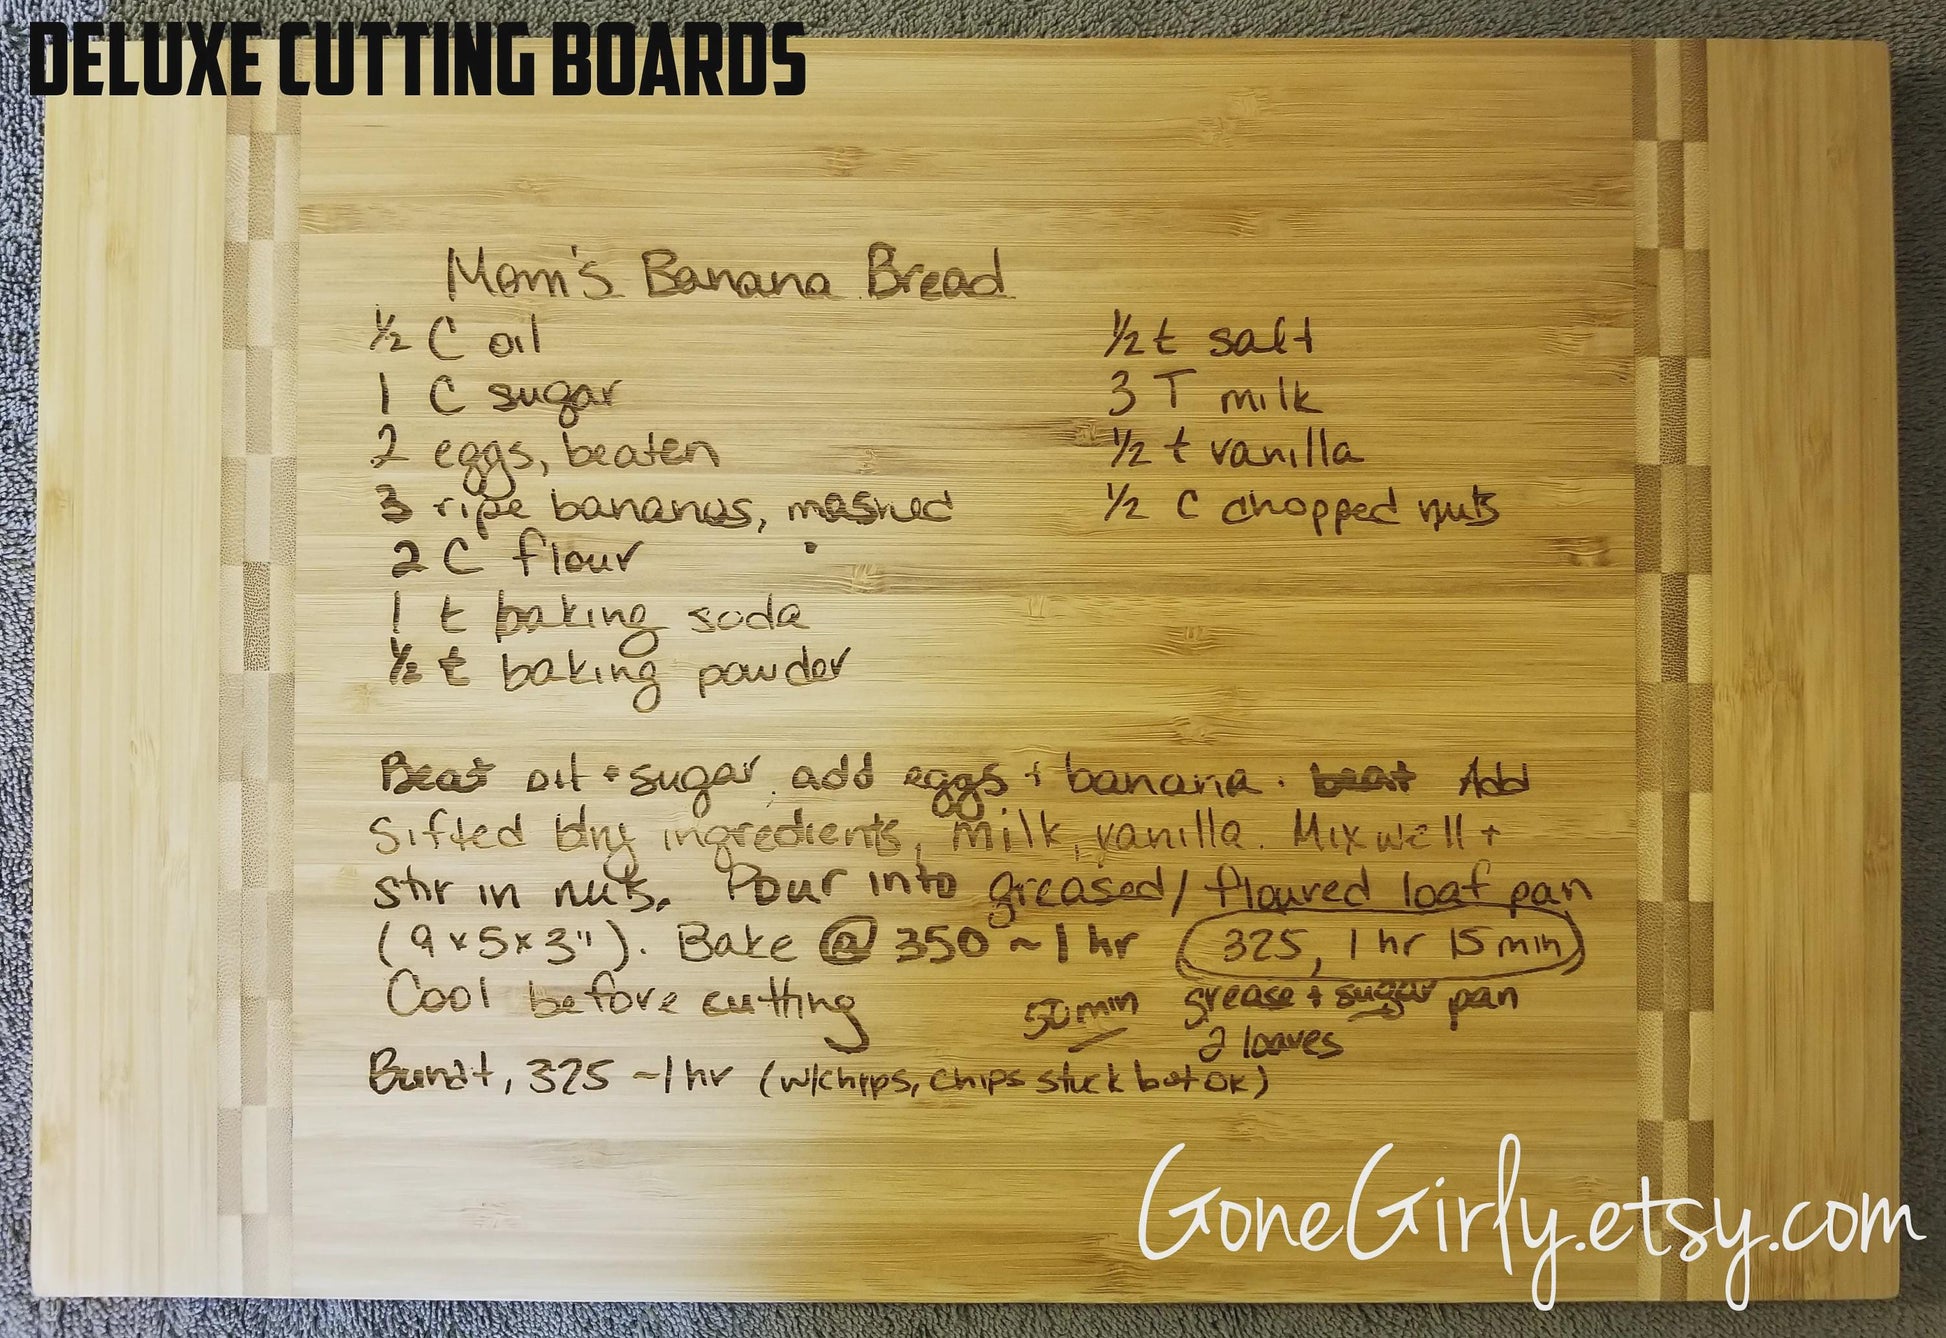 DELUXE CUTTING BOARDS
Mom's Banana Bread
½ C oil
1 C sugar
2 eggs, beaten
3 ripe bananas, mashed
2 C flour
1 t baking soda
½ t baking powder
½ t salt
3 T milk
½ t vanilla
½ C chopped nuts
Beat oil + sugar, add eggs + banana. beat Add
Sifted dry ingredients, milk, vanilla. Mix well +
stir in nuts. Pour into greased/floured loaf pan
(9x5x3"). Bake @ 350 ~ 1 hr (325, 1 hr 15 min)
Cool before cutting 50 min grease + sugar pan
2 loaves
Bundt, 325 ~1 hr (w/chips, chips stuck but ok)
GoneGirly.etsy.com